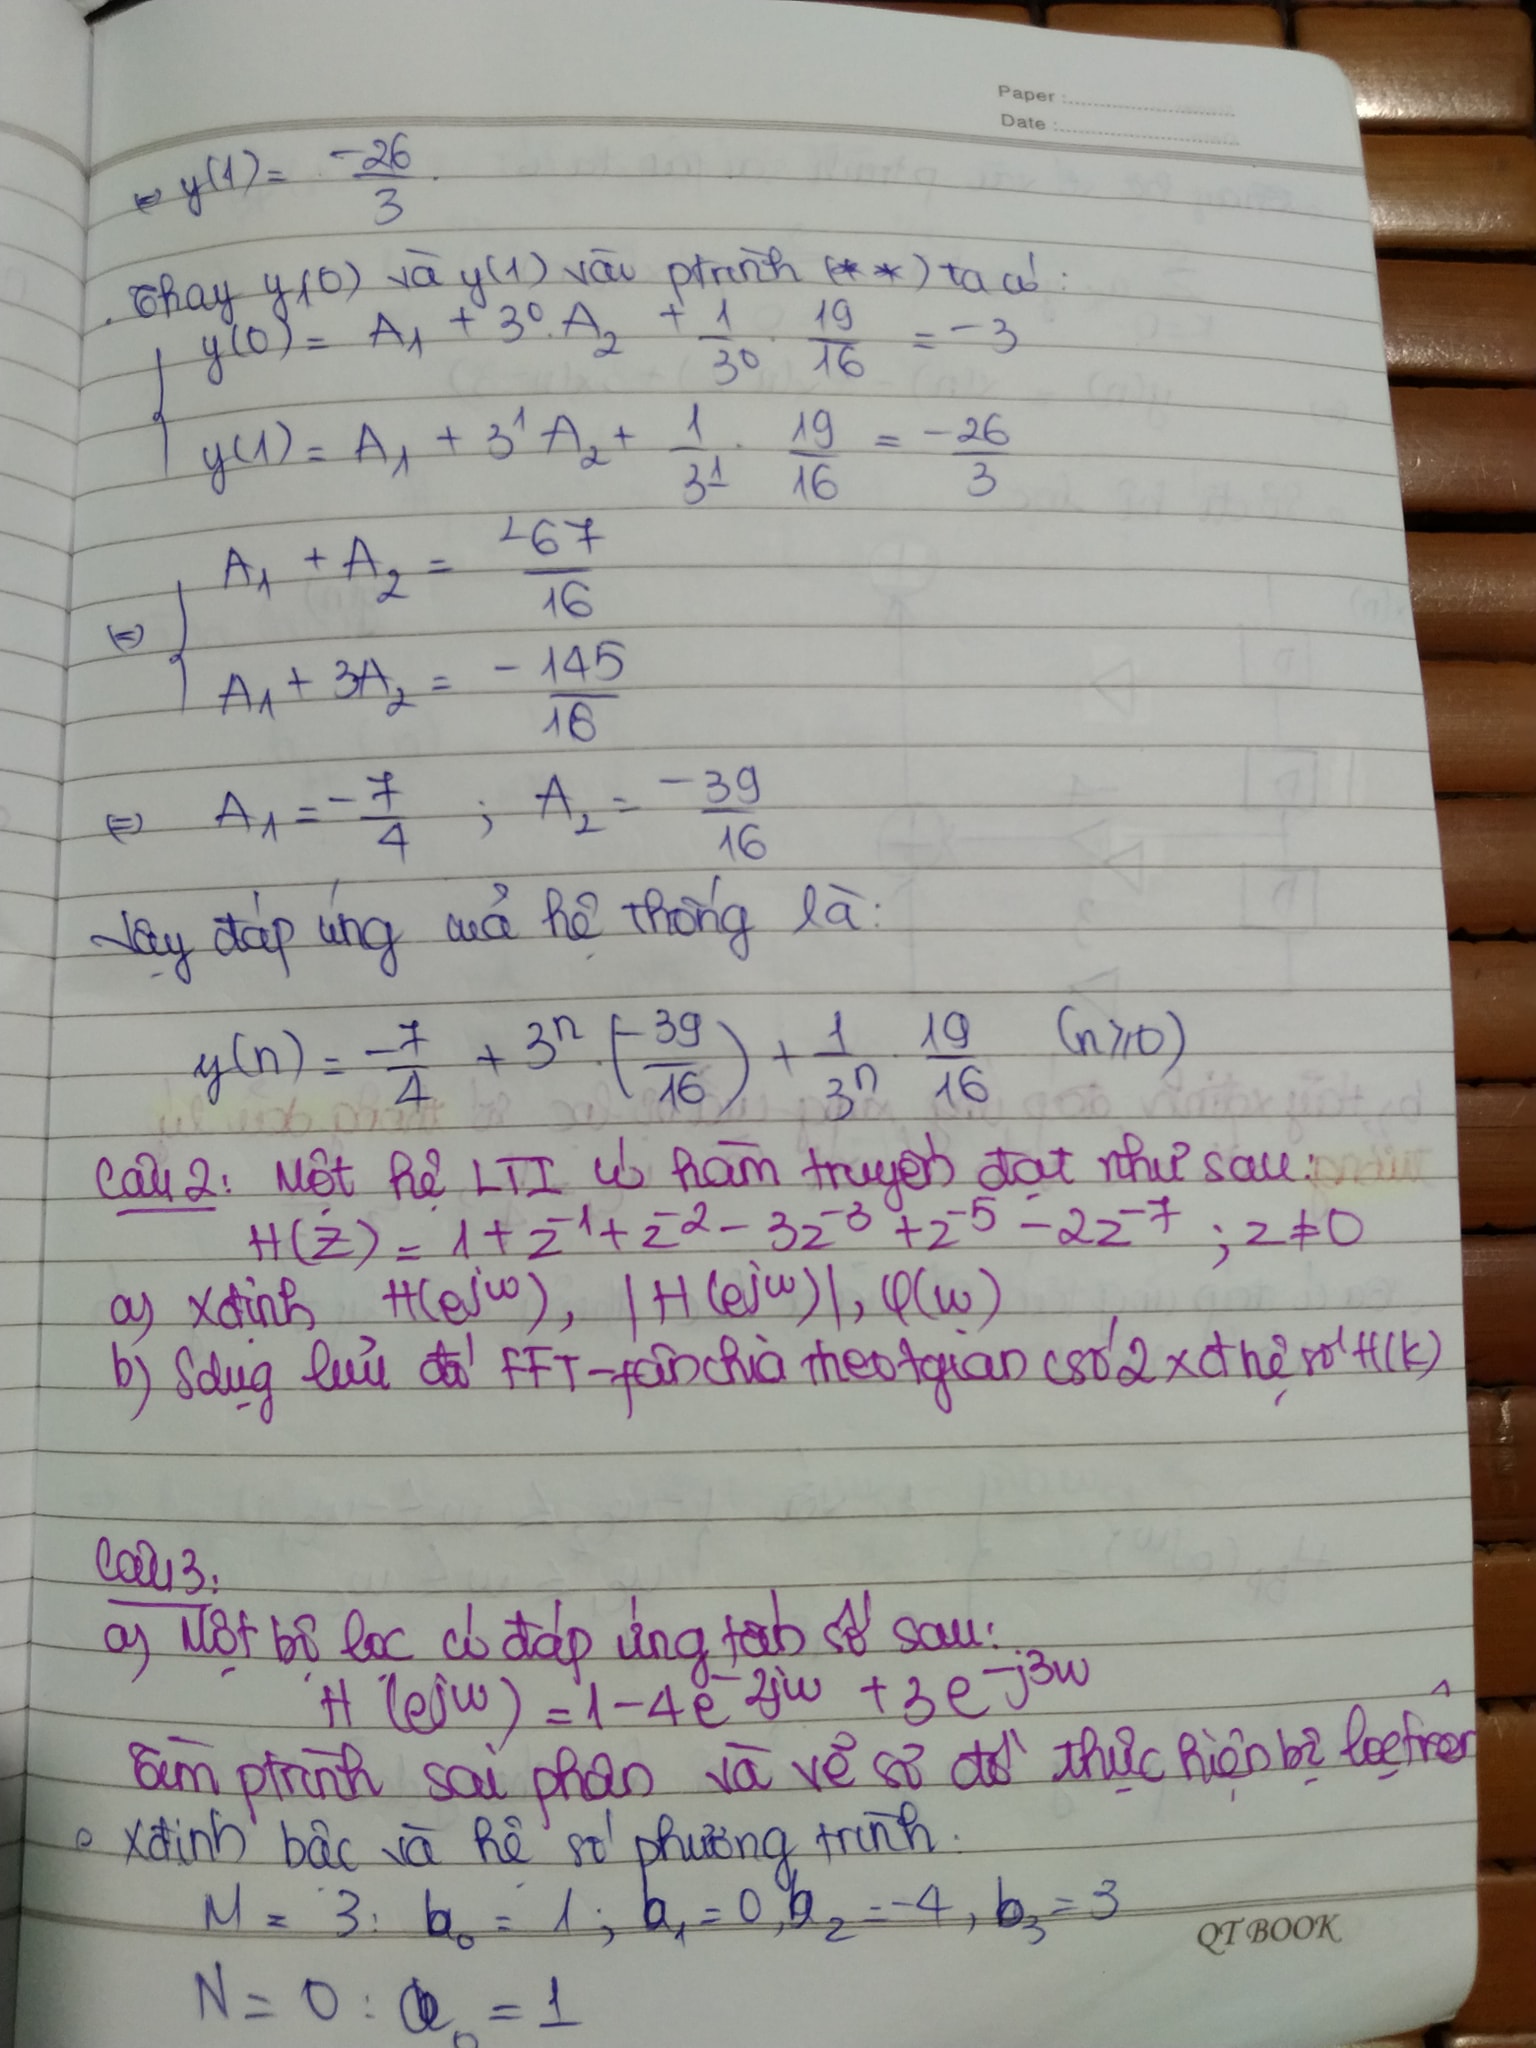 Paper :
Date :
⇔ y(1) = -26/3.
. Thay y(0) và y(1) vào ptrình (**) ta có:
y(0) = A1 + 3^0.A2 + 1/3^0 . 19/16 = -3
y(1) = A1 + 3^1 A2 + 1/3^1 . 19/16 = -26/3
⇔ A1 + A2 = -67/16
A1 + 3A2 = -145/16
⇔ A1 = -7/4 ; A2 = -39/16
Vậy đáp ứng của hệ thống là:
y(n) = -7/4 + 3^n.(-39/16) + 1/3^n . 19/16 (n≥0)
Câu 2: Một hệ LTI có hàm truyền đạt như sau:
H(z) = 1 + z^-1 + z^-2 - 3z^-3 + z^-5 - 2z^-7 ; z ≠ 0
a) xđịnh H(e^jω), |H(e^jω)|, φ(ω)
b) Sdụng lưu đồ FFT-phân chia theo tgian cơ số 2 xđ hệ số H(k)
Câu 3:
a) Một bộ lọc có đáp ứng tần số sau:
H(e^jω) = 1 - 4e^-2jω + 3e^-j3ω
Tìm ptrình sai phân và vẽ sơ đồ thực hiện bộ lọc trên
• xđịnh bậc và hệ số phương trình.
M = 3: b0 = 1; b1 = 0, b2 = -4, b3 = 3
QT BOOK
N = 0 : a0 = 1